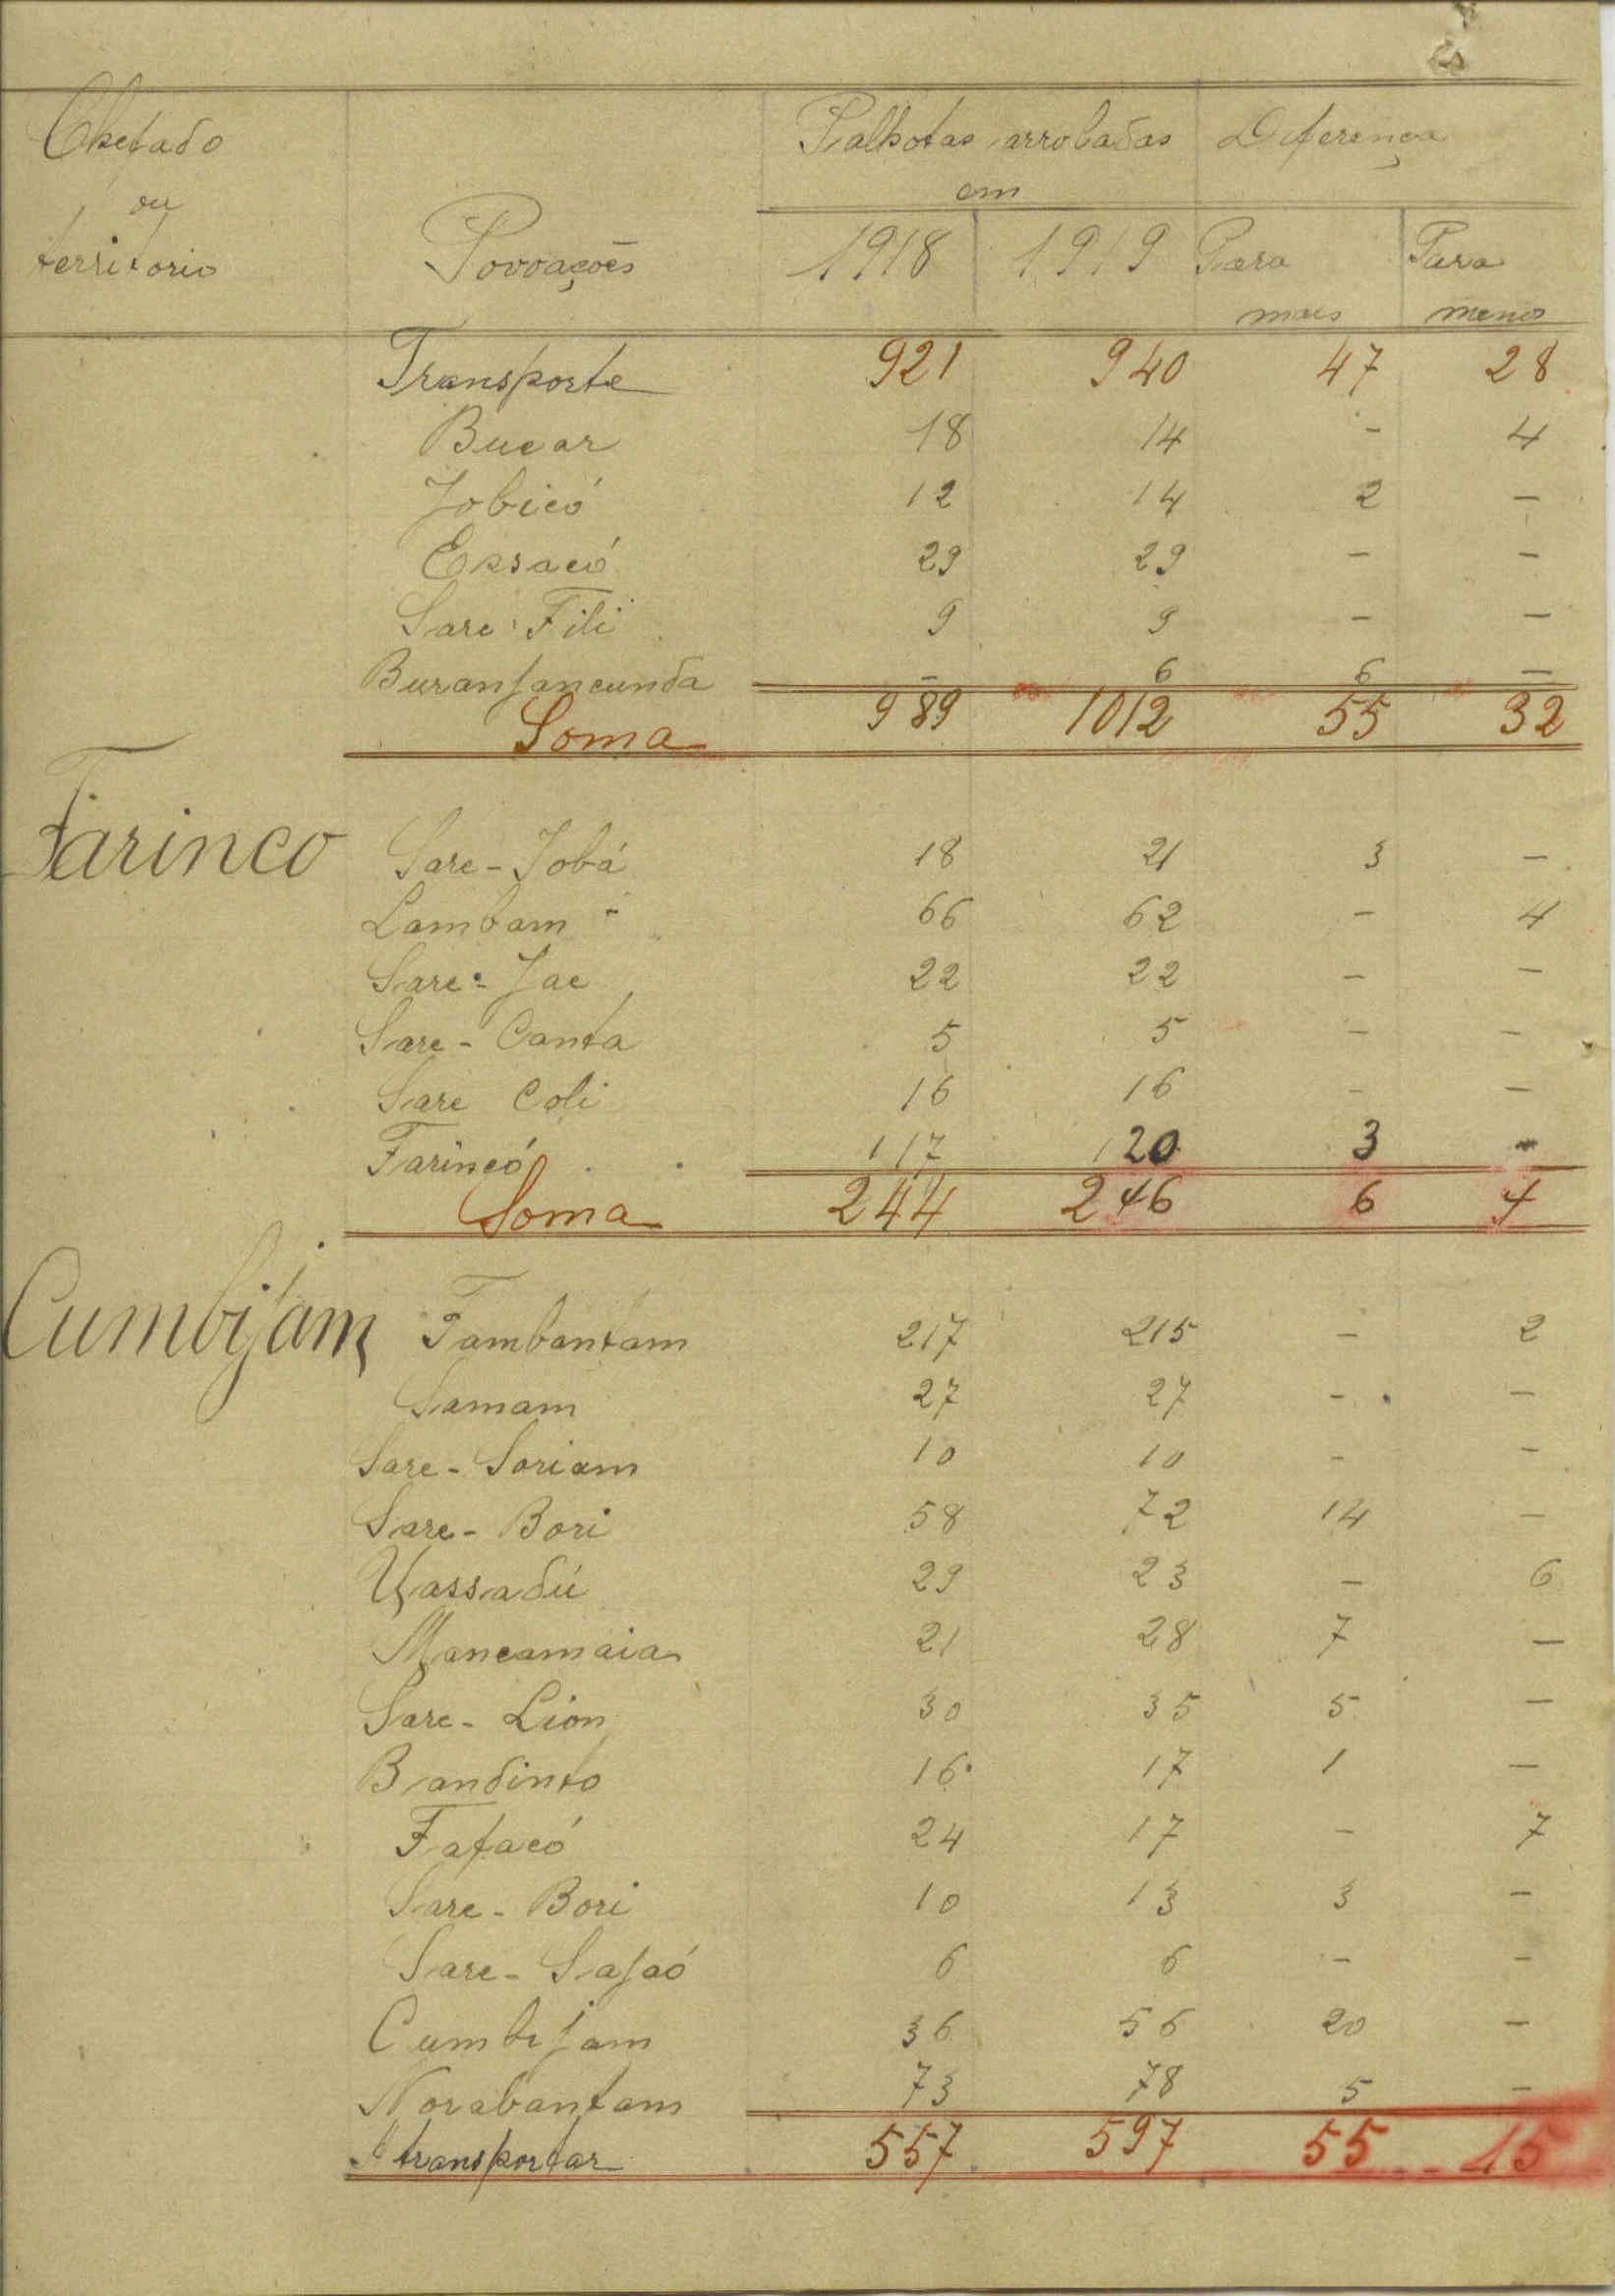 Chefado Palhotas arroladas Diferença
ou em
territorio Povoações 1918 1919 Para mais Para menos
Transporte 921 940 47 28
Bucar 18 14 - 4
Jobicó 12 14 2 -
Essacó 29 29 - -
Sare-Fili 9 9 - -
Buranjancunda - 6 6 -
Soma 989 1012 55 32
Farinco Sare-Jobá 18 21 3 -
Lambam 66 62 - 4
Sare-Jae 22 22 - -
Sare-Canta 5 5 - -
Sare Coli 16 16 - -
Farincó 117 120 3 -
Soma 244 246 6 4
Cumbijam Tambantam 217 215 - 2
Samam 27 27 - -
Sare-Soriam 10 10 - -
Sare-Bori 58 72 14 -
Vassadú 29 23 - 6
Mancamaia 21 28 7 -
Sare-Lion 30 35 5 -
Bandinto 16 17 1 -
Fafacó 24 17 - 7
Sare-Bori 10 13 3 -
Sare-Sajaó 6 6 - -
Cumbijam 36 56 20 -
Norabantam 73 78 5 -
A transportar 557 597 55 15